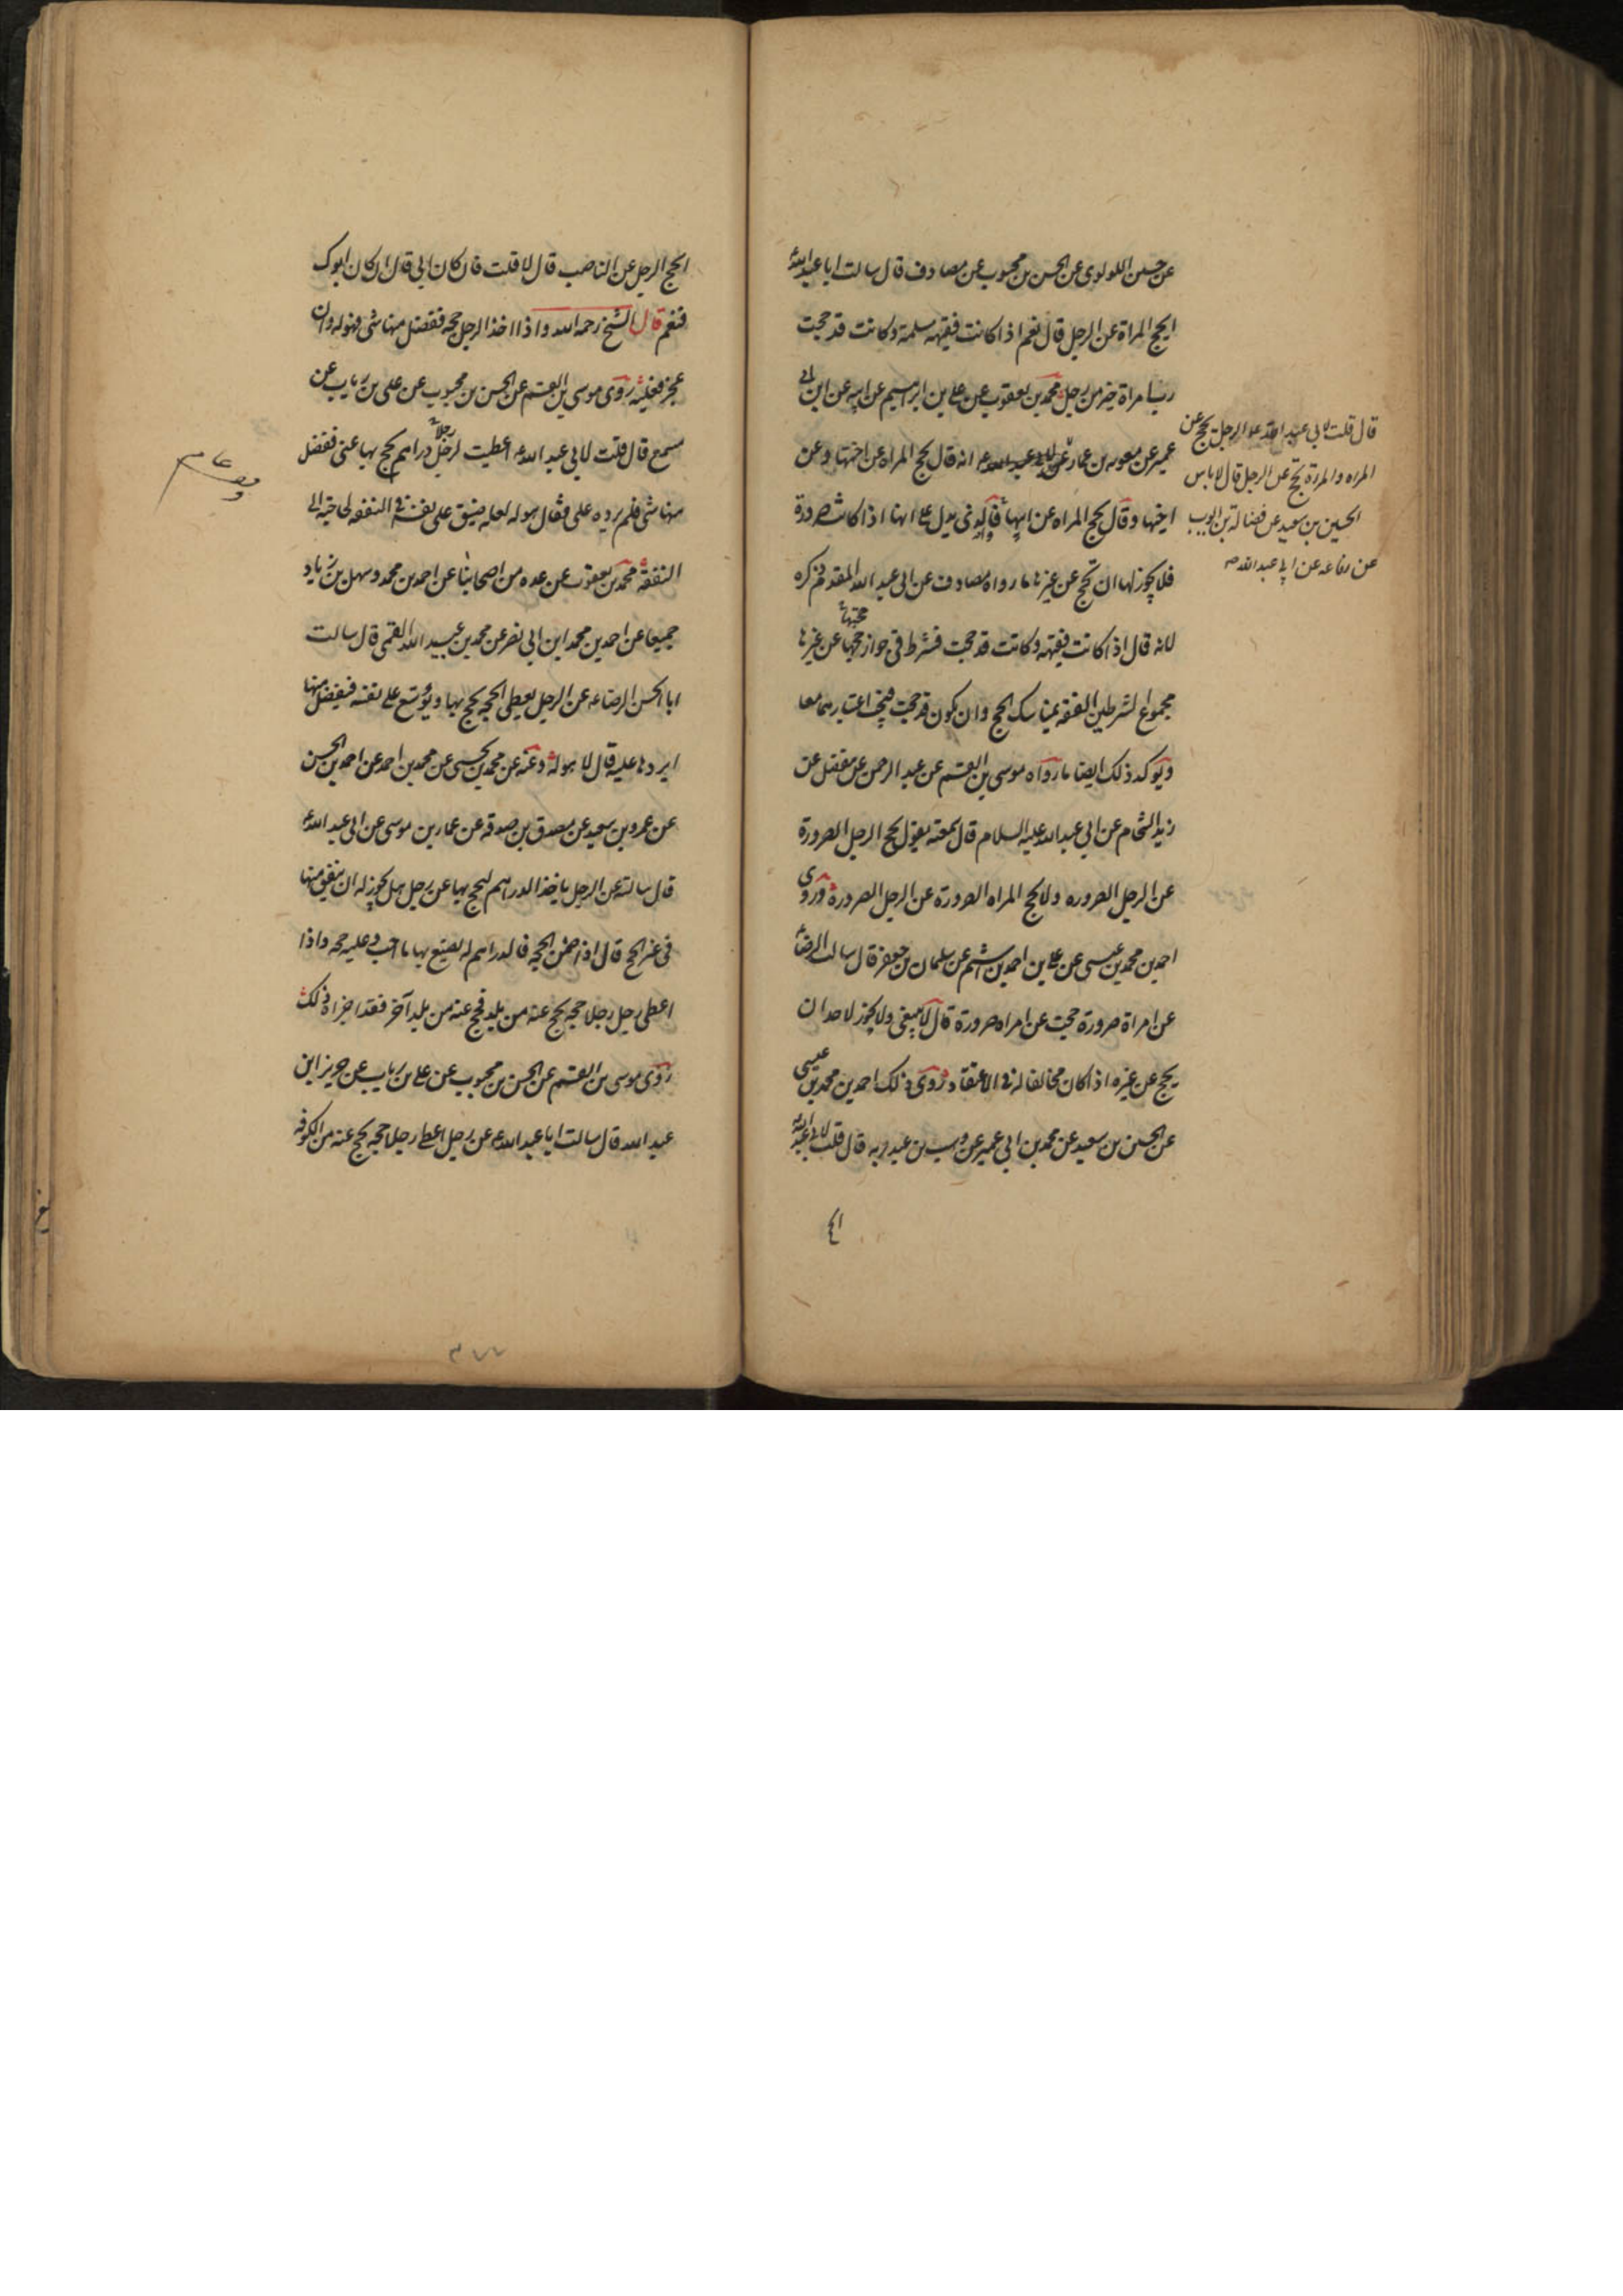 عن حسين اللولوى عن الحسن بن محبوب عن مصادف قال سالت ابا عبد الله ع
ايحج المراة عن الرجل قال نعم اذا كانت فقيهه مسلمة وكانت قد حجت
رب امراة خير من رجل محمد بن يعقوب عن على بن ابراهيم عن ابيه عن ابن ابى
عمير عن معويه بن عمار عن ابى عبد الله ع انه قال تحج المراه عن اختها وعن
اخيها وقال تحج المراه عن ابيها فالذى يدل على انها اذا كانت صرورة
فلا يجوز لها ان تحج عن غيرها ما رواه مصادف عن ابى عبد الله المقدم ذكره
لانه قال اذا كانت فقيهه وكانت قد حجت فشرط فى جواز حجها عن غيرها
مجموع الشرطين الفقه بمناسك الحج وان يكون قد حجت فيجب اعتبارهما معا
ويوكد ذلك ايضا ما رواه موسى بن القسم عن عبد الرحمن عن مفضل عن
زيد الشحام عن ابى عبد الله عليه السلام قال سمعته يقول يحج الرجل الصرورة
عن الرجل الصروره ولا تحج المراه الصرورة عن الرجل الصرورة وروى
احمد بن محمد بن عيسى عن على بن احمد بن اشيم عن سلمان بن جعفر قال سالت الرضا ع
عن امراة صرورة حجت عن امراه صرورة قال لا ينبغى ولا يجوز لاحد ان
يحج عن غيره اذا كان مخالفا له فى الاعتقاد روى ذلك احمد بن محمد بن عيسى
عن الحسين بن سعيد عن محمد بن ابى عمير عن وهب بن عبد ربه قال قلت لابى عبد الله ع
قال قلت لابى عبد الله ع الرجل يحج عن
المراه والمراة تحج عن الرجل قال لا باس
الحسين بن سعيد عن فضالة بن ايوب
عن رفاعه عن ابى عبد الله ع
الحج الرجل عن الناصب قال لا قلت فان كان ابى قال ان كان ابوك
فنعم قال الشيخ رحمه الله واذا اخذ الرجل حجه ففضل منها شى فهو له وان
عجز فعليه روى موسى بن القسم عن الحسن بن محبوب عن على بن رياب عن
مسمع قال قلت لابى عبد الله ع اعطيت رجلا دراهم يحج بها عنى ففضل
منها شى فلم يرده على فقال هو له لعله ضيق على نفسه فى النفقه لحاجته الى
النفقة محمد بن يعقوب عن عده من اصحابنا عن احمد بن محمد وسهل بن زياد
جميعا عن احمد بن محمد ابن ابى نصر عن محمد بن عبيد الله القمى قال سالت
ابا الحسن الرضا ع عن الرجل يعطى الحجه يحج بها ويوسع على نفسه فيفضل منها
ايردها عليه قال لا هو له وعنه عن محمد بن يحيى عن محمد بن احمد عن احمد بن الحسن
عن عمرو بن سعيد عن مصدق بن صدقه عن عمار بن موسى عن ابى عبد الله ع
قال سالته عن الرجل ياخذ الدراهم ليحج بها عن رجل هل يجوز له ان ينفق منها
فى غير الحج قال اذا ضمن الحجه فالدراهم له يصنع بها ما احب وعليه حجه واذا
اعطى رجل رجلا حجه يحج عنه من بلد فحج عنه من بلد آخر فقد اجزاه ذلك
روى موسى بن القسم عن الحسن بن محبوب عن على بن رياب عن حريز ابن
عبد الله قال سالت ابا عبد الله ع عن رجل اعطى رجلا حجه يحج عنه من الكوفه